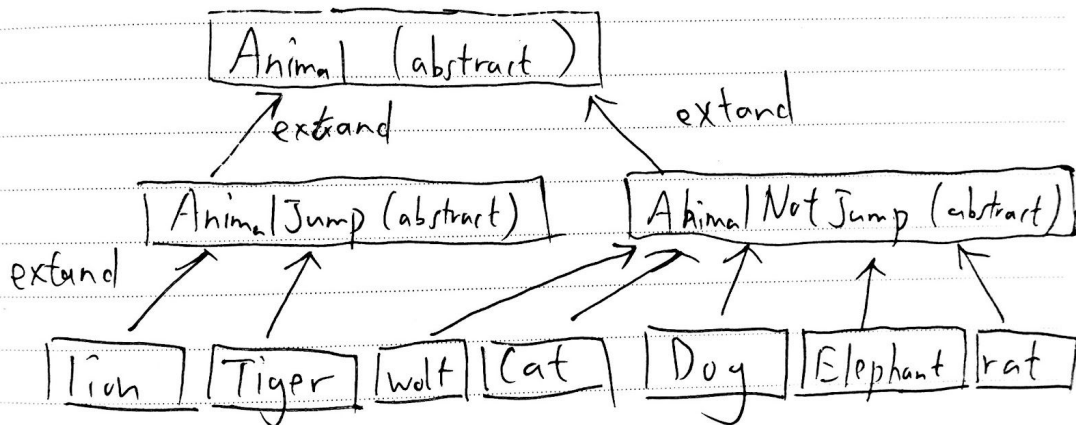 Animal (abstract)
extand extand
AnimalJump (abstract) AnimalNotJump (abstract)
extand
lion Tiger wolf Cat Dog Elephant rat